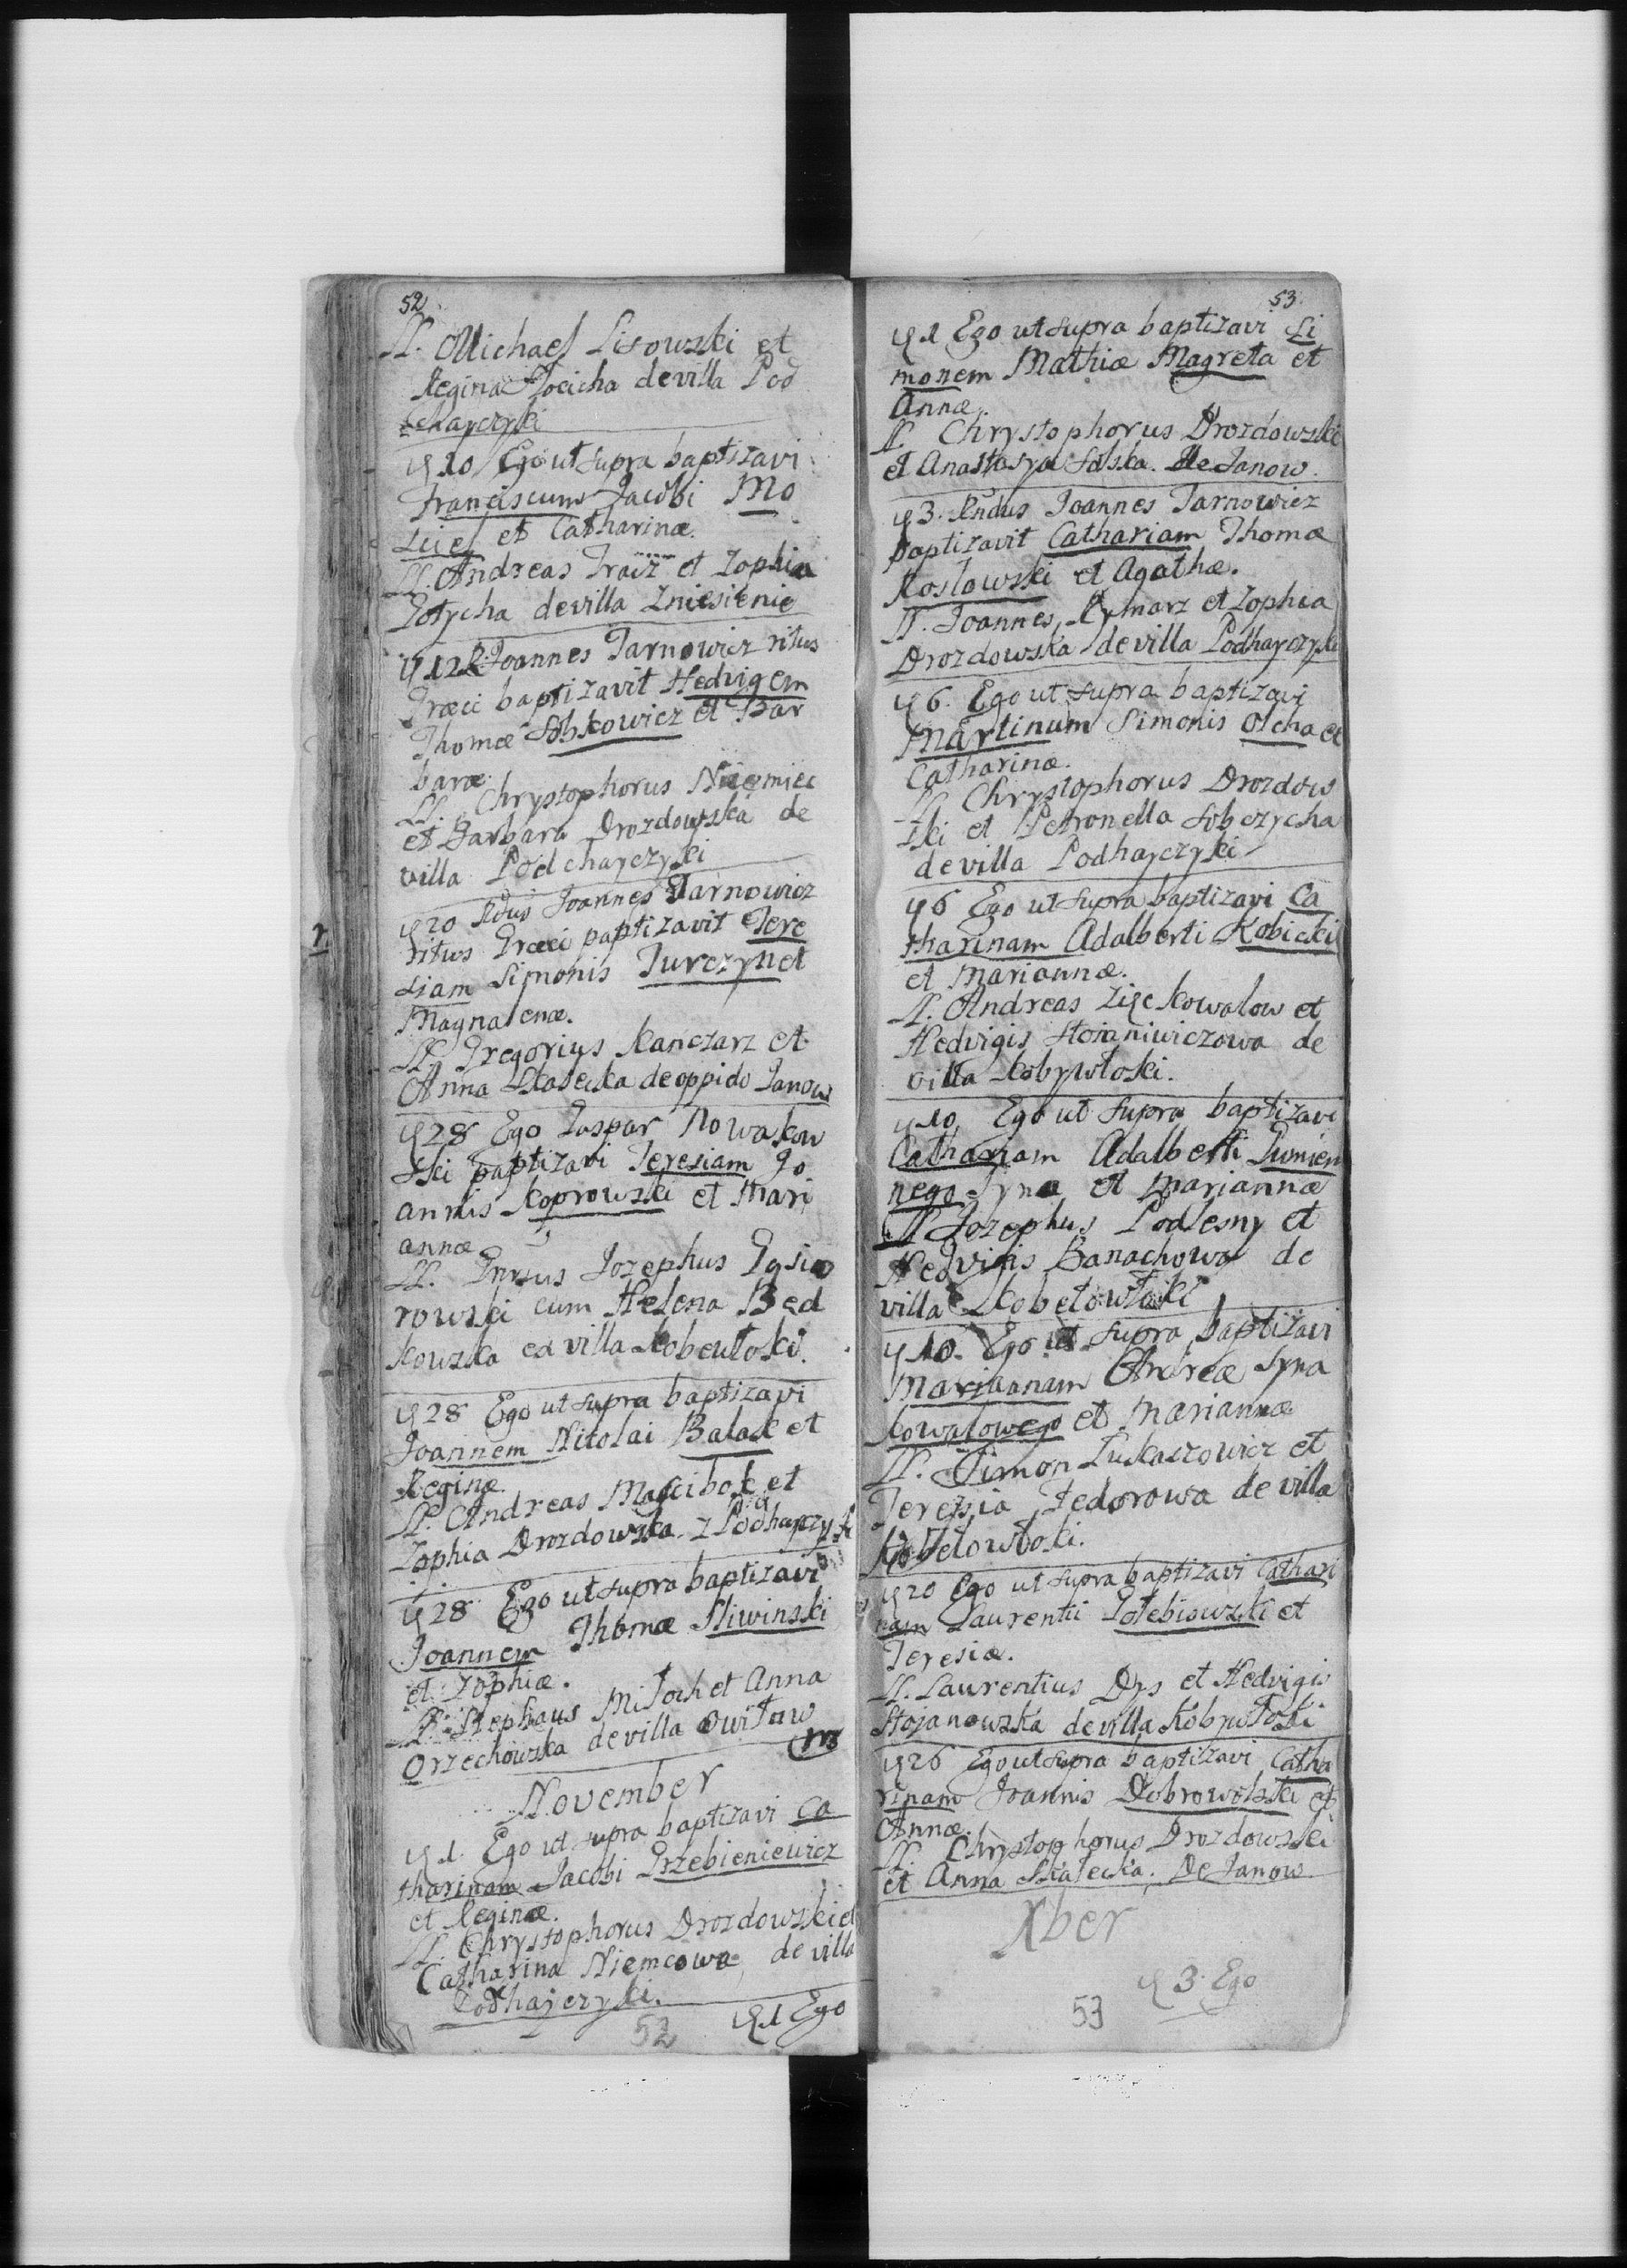 52
LL. Michael Lisowski et
Regina Kocicha de villa Pod
chayczyki
10 Ego ut supra baptizavi
Franciscum Jacobi Mo
siel et Catharinæ.
LL. Andreas et Zophia
Zotycha de villa Zniesienie
12 R. Joannes Tarnowicz ritus
Græci baptizavit Hedvigem
Thomæ Sobkowicz et Bar
baræ
LL. Chrystophorus Niemiec
et Barbara Drozdowska de
villa Podchayczyki
20 Rdus Joannes Tarnowicz
ritus Græci baptizavit Tere
siam Simonis Turczyn et
Magnalenæ.
LL. Gregorius Kanczarz et
Anna Skalecka de oppido Janow
28 Ego Gaspar Nowakow
ski baptizavi Teresiam Jo
annis Koprowski et Mari
annæ
LL. Jozephus Gąsio
rowski cum Helena Bed
kowska ea villa Kobeutoki.
28 Ego ut supra baptizavi
Joannem Nicolai Balak et
Reginæ
LL. Andreas Macibok et
Zophia Drozdowska z Podhayczyk
28 Ego ut supra baptizavi
Joannem Thomæ Sliwinski
et Zophiæ.
LL. Stephaus Mitoch et Anna
Orzechowska de villa Owitow
November
1. Ego ut supra baptizavi Ca
tharinam Jacobi Grzebieniewicz
et Reginæ.
LL. Chrystophorus Drozdowski et
Catharina Niemcowa de villa
Podhajczyki.
52 1 Ego
53
1 Ego ut supra baptizavi Si
monem Mathiæ Magreta et
Annæ.
LL Chrystophorus Drozdowski
et Anastasya Solska. De Janow.
3. Rndus Joannes Tarnowicz
baptizavit Cathariam Thomæ
Koslowski et Agathæ.
LL. Joannes Rymarz et Zophia
Drozdowska de villa Podhayczyki
6. Ego ut supra baptizavi
Martinum Simonis Olcha et
Catharinæ.
LL Chrystophorus Drozdow
ski et Petronella Sobczycha
de villa Podhayczyki
6 Ego ut supra baptizavi Ca
tharinam Adalberti Kobicki
et Mariannæ.
LL. Andreas Zięc Kowalow et
Hedvigis Stoianiwiczowa de
villa Kobywłoki.
10 Ego ut supra baptizavi
Cathariam Adalberti Gumien
nego Syna et Mariannæ
LL Jozephus Podlesny et
Hedvigis Banachowa de
villa Kobełowłoki
10. Ego ut supra baptizavi
Mariannam Andreæ Syna
Kowalowego et Mariannæ
LL. Simon Łukaszowicz et
Teresia Fedorowa de villa
Kobełowłoki.
20 Ego ut supra baptizavi Cathari
nam Laurentii Gołebiowski et
Teresiæ.
LL. Laurentius Dys et Hedvigis
Stojanowska de villa Kobywłoki
26 Ego ut supra baptizavi Catha
rinam Joannis Dobrowolski et
Annæ.
LL. Chrystophorus Drozdowski
et Anna Skalecka. De Janow
Xber
3. Ego
53